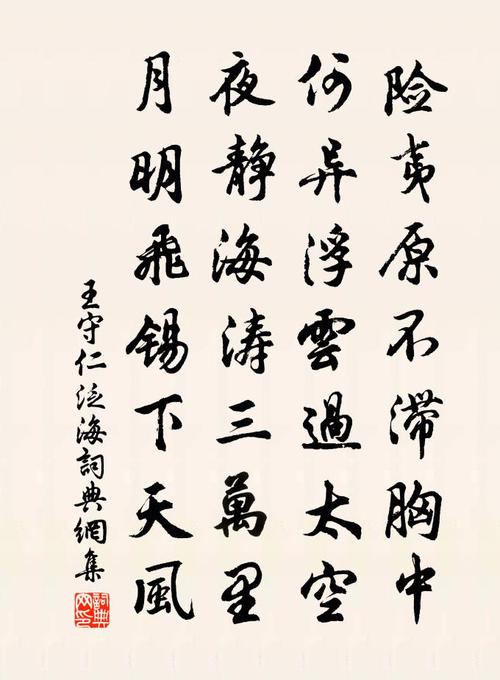 险夷原不滞胸中
何异浮雲過太空
夜静海涛三萬里
月明飛锡下天風
王守仁泛海詞典網集
詞典网印